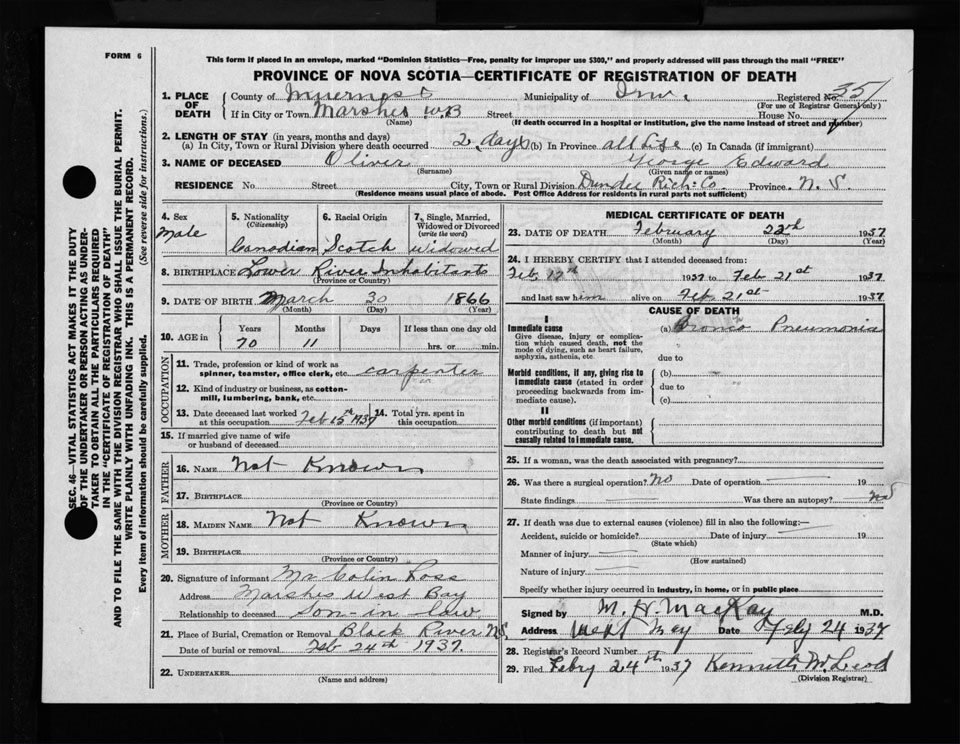 FORM 6
This form if placed in an envelope, marked "Dominion Statistics—Free, penalty for improper use $300," and properly addressed will pass through the mail "FREE"
PROVINCE OF NOVA SCOTIA—CERTIFICATE OF REGISTRATION OF DEATH
SEC. 46—VITAL STATISTICS ACT MAKES IT THE DUTY
OF THE UNDERTAKER OR PERSON ACTING AS UNDER-
TAKER TO OBTAIN ALL THE PARTICULARS REQUIRED
IN THE "CERTIFICATE OF REGISTRATION OF DEATH"
AND TO FILE THE SAME WITH THE DIVISION REGISTRAR WHO SHALL ISSUE THE BURIAL PERMIT.
WRITE PLAINLY WITH UNFADING INK. THIS IS A PERMANENT RECORD.
Every item of information should be carefully supplied. (See reverse side for instructions.)
1. PLACE OF DEATH County of Inverness Municipality of Inv. Registered No. 35
(For use of Registrar General only)
If in City or Town Marshes W.B Street House No.
(Name) (If death occurred in a hospital or institution, give the name instead of street and number)
2. LENGTH OF STAY (in years, months and days)
(a) In City, Town or Rural Division where death occurred 2 days (b) In Province all Life (c) In Canada (if immigrant)
3. NAME OF DECEASED Oliver George Edward
(Surname) (Given name or names)
RESIDENCE No Street City, Town or Rural Division Dundee Rich: Co. Province N. S.
(Residence means usual place of abode. Post Office Address for residents in rural parts not sufficient)
4. Sex Male
5. Nationality (Citizenship) Canadian
6. Racial Origin Scotch
7. Single, Married, Widowed or Divorced (write the word) Widowed
8. BIRTHPLACE Lower River Inhabitants
(Province or Country)
9. DATE OF BIRTH March 30 1866
(Month) (Day) (Year)
10. AGE in Years Months Days If less than one day old
70 11 hrs. or min.
OCCUPATION
11. Trade, profession or kind of work as
spinner, teamster, office clerk, etc. carpenter
12. Kind of industry or business, as cotton-
mill, lumbering, bank, etc.
13. Date deceased last worked at this occupation Feb 15st 1937 14. Total yrs. spent in this occupation
15. If married give name of wife
or husband of deceased
FATHER
16. NAME Not Known
17. BIRTHPLACE
(Province or Country)
MOTHER
18. MAIDEN NAME Not Known
19. BIRTHPLACE
(Province or Country)
20. Signature of informant Mr Colin Ross
Address Marshes West Bay
Relationship to deceased Son-in law
21. Place of Burial, Cremation or Removal Black River N.S.
Date of burial or removal Feb 24th 1937.
22. UNDERTAKER
(Name and address)
MEDICAL CERTIFICATE OF DEATH
23. DATE OF DEATH February 22th 1937
(Month) (Day) (Year)
24. I HEREBY CERTIFY that I attended deceased from:
Feb 17th 1937 to Feb 21st 1937
and last saw him alive on Feb 21st 1937
CAUSE OF DEATH
I
Immediate cause (a) Bronco Pneumonia
Give disease, injury or complica-
tion which caused death, not the
mode of dying, such as heart failure,
asphyxia, asthenia, etc.
due to
Morbid conditions, if any, giving rise to (b)
immediate cause (stated in order due to
proceeding backwards from im-
mediate cause). (c)
II
Other morbid conditions (if important)
contributing to death but not
causally related to immediate cause.
25. If a woman, was the death associated with pregnancy?
26. Was there a surgical operation? No Date of operation 19
State findings Was there an autopsy? No
27. If death was due to external causes (violence) fill in also the following:—
Accident, suicide or homicide? Date of injury 19
(State which)
Manner of injury
(How sustained)
Nature of injury
Specify whether injury occurred in industry, in home, or in public place
Signed by M. H MacKay M.D.
Address West Bay Date Feby 24 1937
28. Registrar's Record Number
29. Filed Feby 24th 1937 Kenneth McLeod
(Division Registrar)